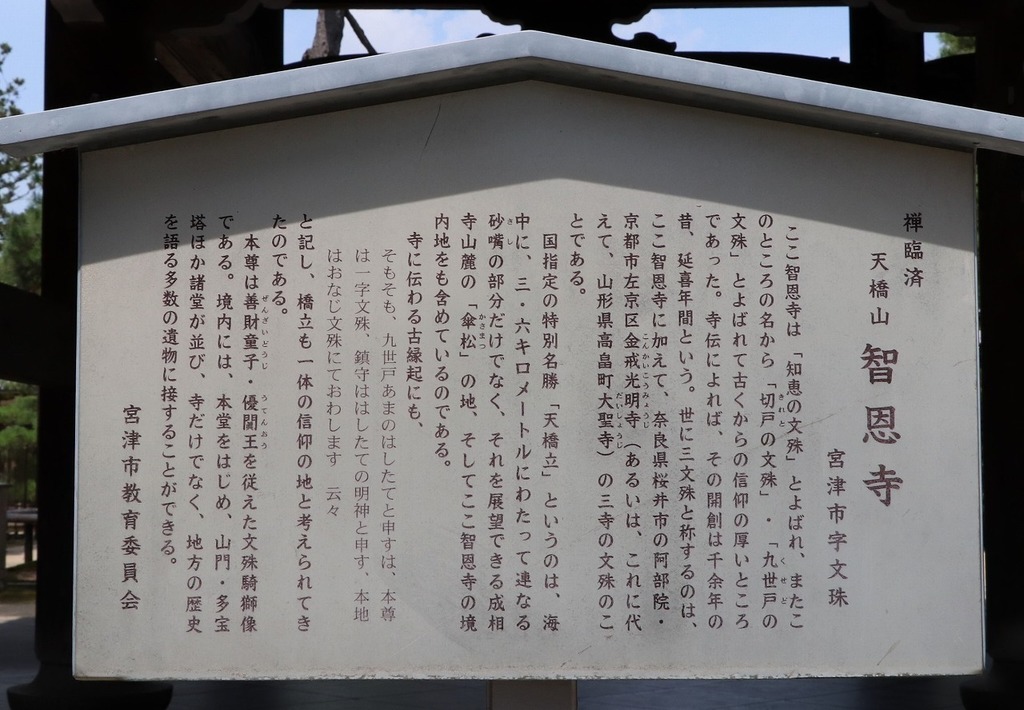 禅臨済
天橋山 智恩寺
宮津市字文珠
ここ智恩寺は「知恵の文殊」とよばれ、またこ
のところの名から「切戸の文殊」・「九世戸の
文殊」とよばれて古くからの信仰の厚いところ
であった。寺伝によれば、その開創は千余年の
昔、延喜年間という。世に三文殊と称するのは、
ここ智恩寺に加えて、奈良県桜井市の阿部院・
京都市左京区金戒光明寺（あるいは、これに代
えて、山形県高畠町大聖寺）の三寺の文殊のこ
とである。
国指定の特別名勝「天橋立」というのは、海
中に、三・六キロメートルにわたって連なる
砂嘴の部分だけでなく、それを展望できる成相
寺山麓の「傘松」の地、そしてここ智恩寺の境
内地をも含めているのである。
寺に伝わる古縁起にも、
そもそも、九世戸あまのはしたてと申すは、本尊
は一字文殊、鎮守ははしたての明神と申す、本地
はおなじ文殊にておわします 云々
と記し、橋立も一体の信仰の地と考えられてき
たのである。
本尊は善財童子・優闐王を従えた文殊騎獅像
である。境内には、本堂をはじめ、山門・多宝
塔ほか諸堂が並び、寺だけでなく、地方の歴史
を語る多数の遺物に接することができる。
宮津市教育委員会